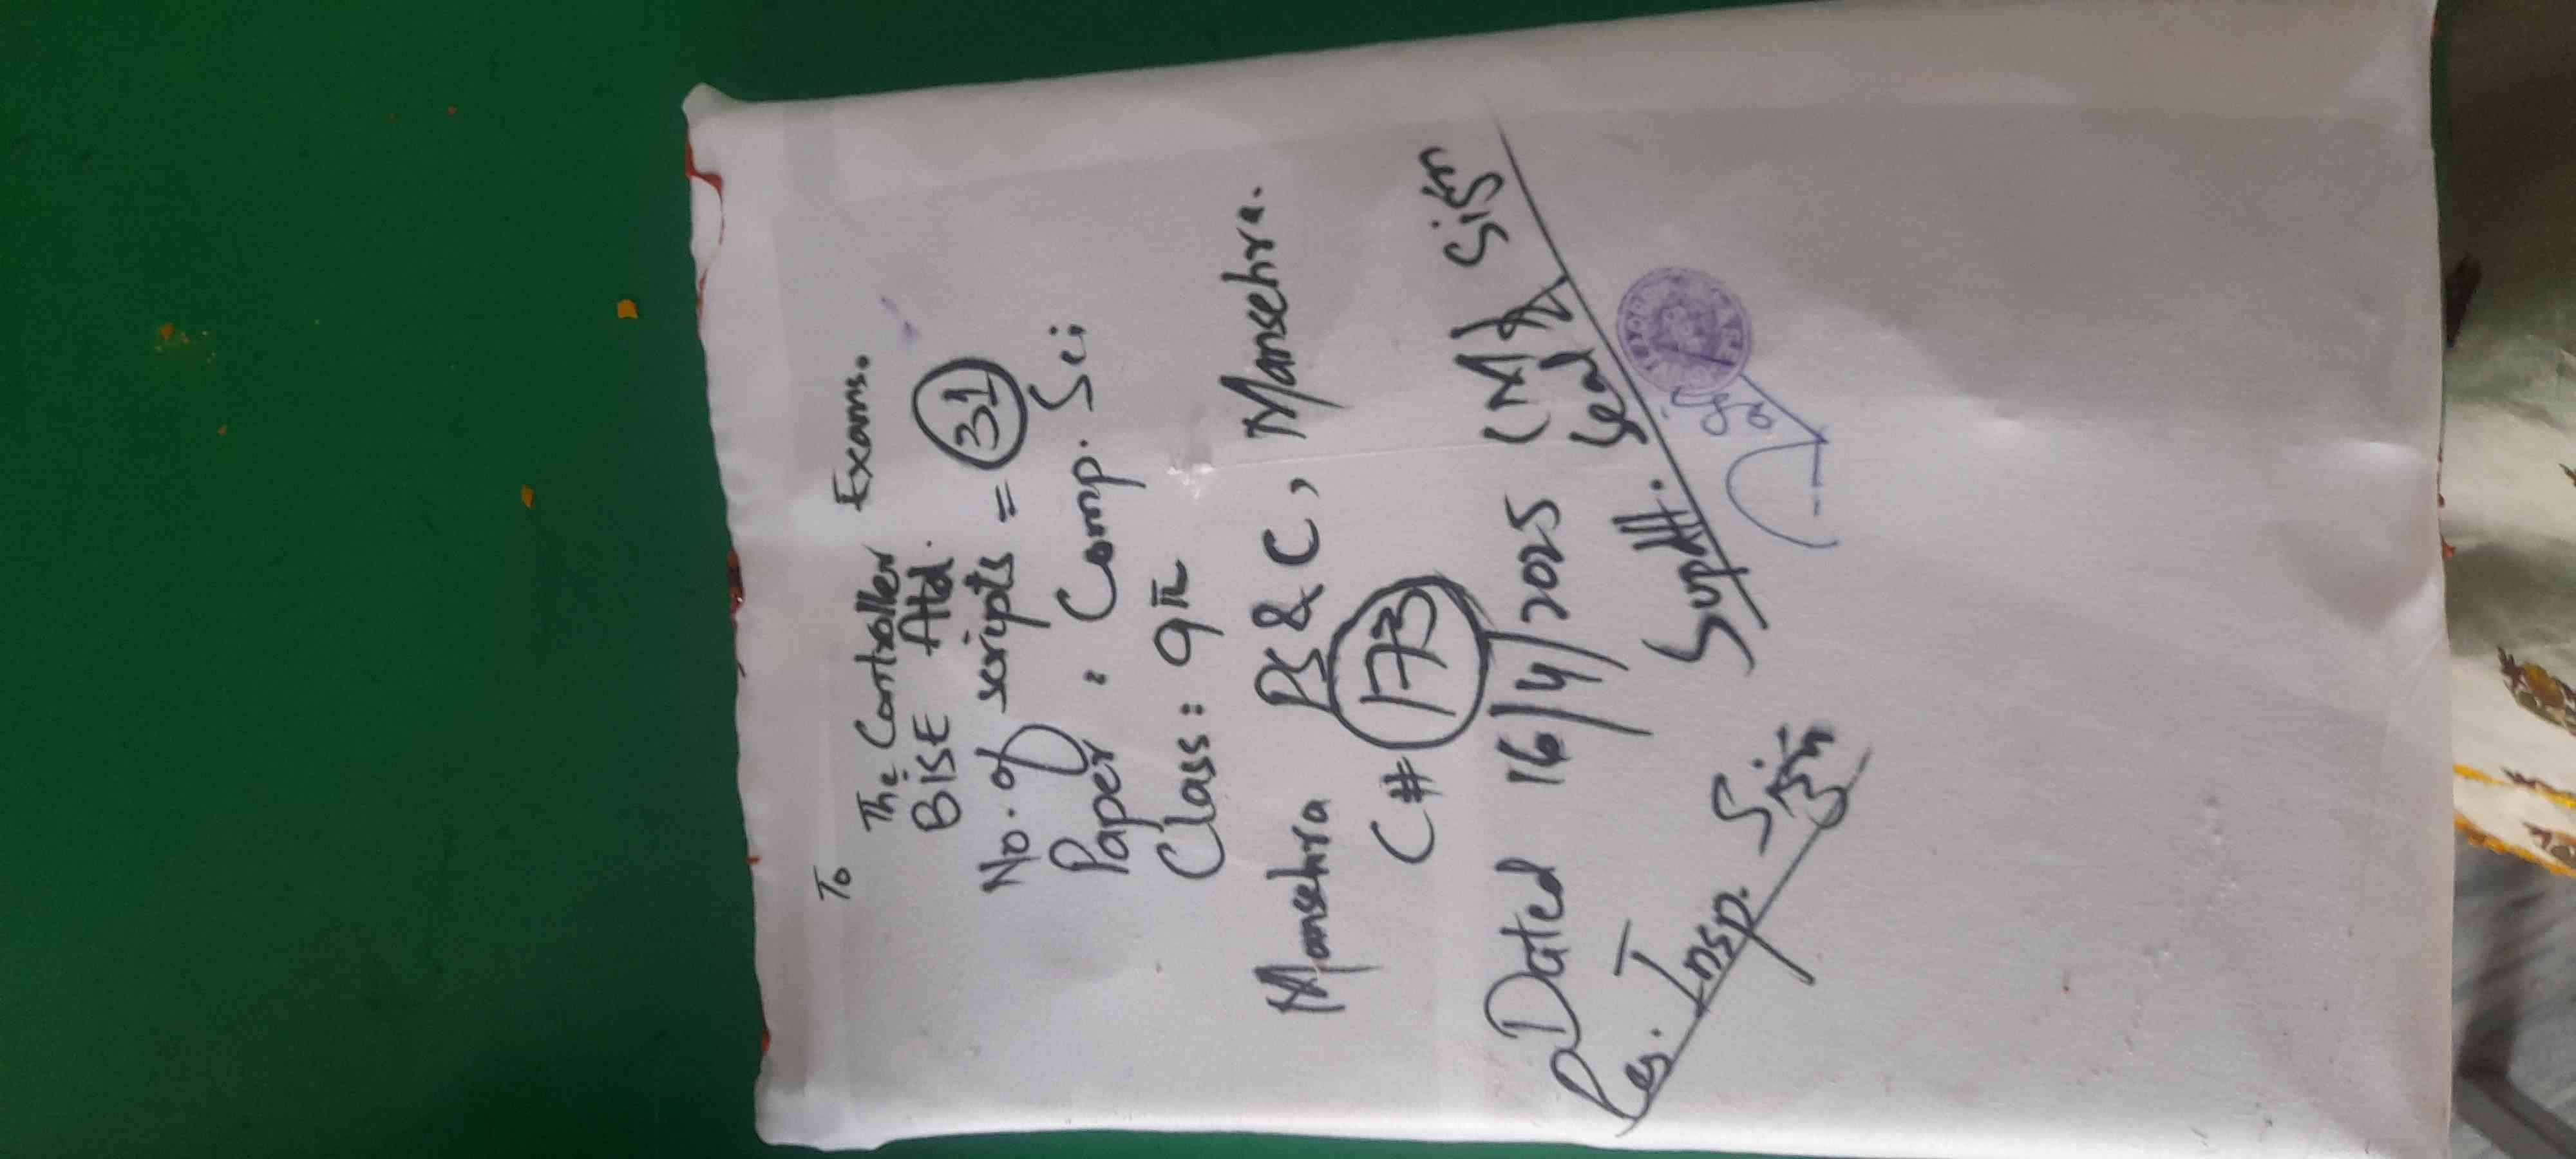 To
The Controller Exams.
BISE Atd.
No. of scripts = 31
Paper : Comp. Sci:
Class: 9th
Mansehra PS & C, Mansehra.
C# 173
Dated 16/4/2025 (M)
Supdtt. Seal & Sign
Res. Insp. Sign